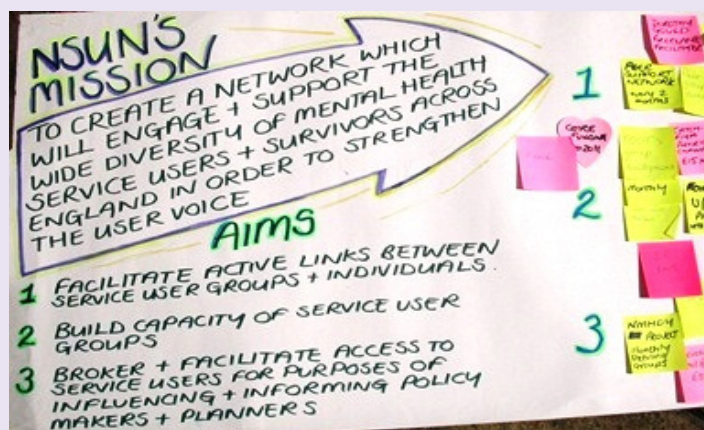 NSUN'S
MISSION
TO CREATE A NETWORK WHICH
WILL ENGAGE + SUPPORT THE
WIDE DIVERSITY OF MENTAL HEALTH
SERVICE USERS + SURVIVORS ACROSS
ENGLAND IN ORDER TO STRENGTHEN
THE USER VOICE
AIMS
1 FACILITATE ACTIVE LINKS BETWEEN
SERVICE USER GROUPS + INDIVIDUALS.
2 BUILD CAPACITY OF SERVICE USER
GROUPS
3 BROKER + FACILITATE ACCESS TO
SERVICE USERS FOR PURPOSES OF
INFLUENCING + INFORMING POLICY
MAKERS + PLANNERS
1
PEER
SUPPORT
NETWORK
2
monthly
3